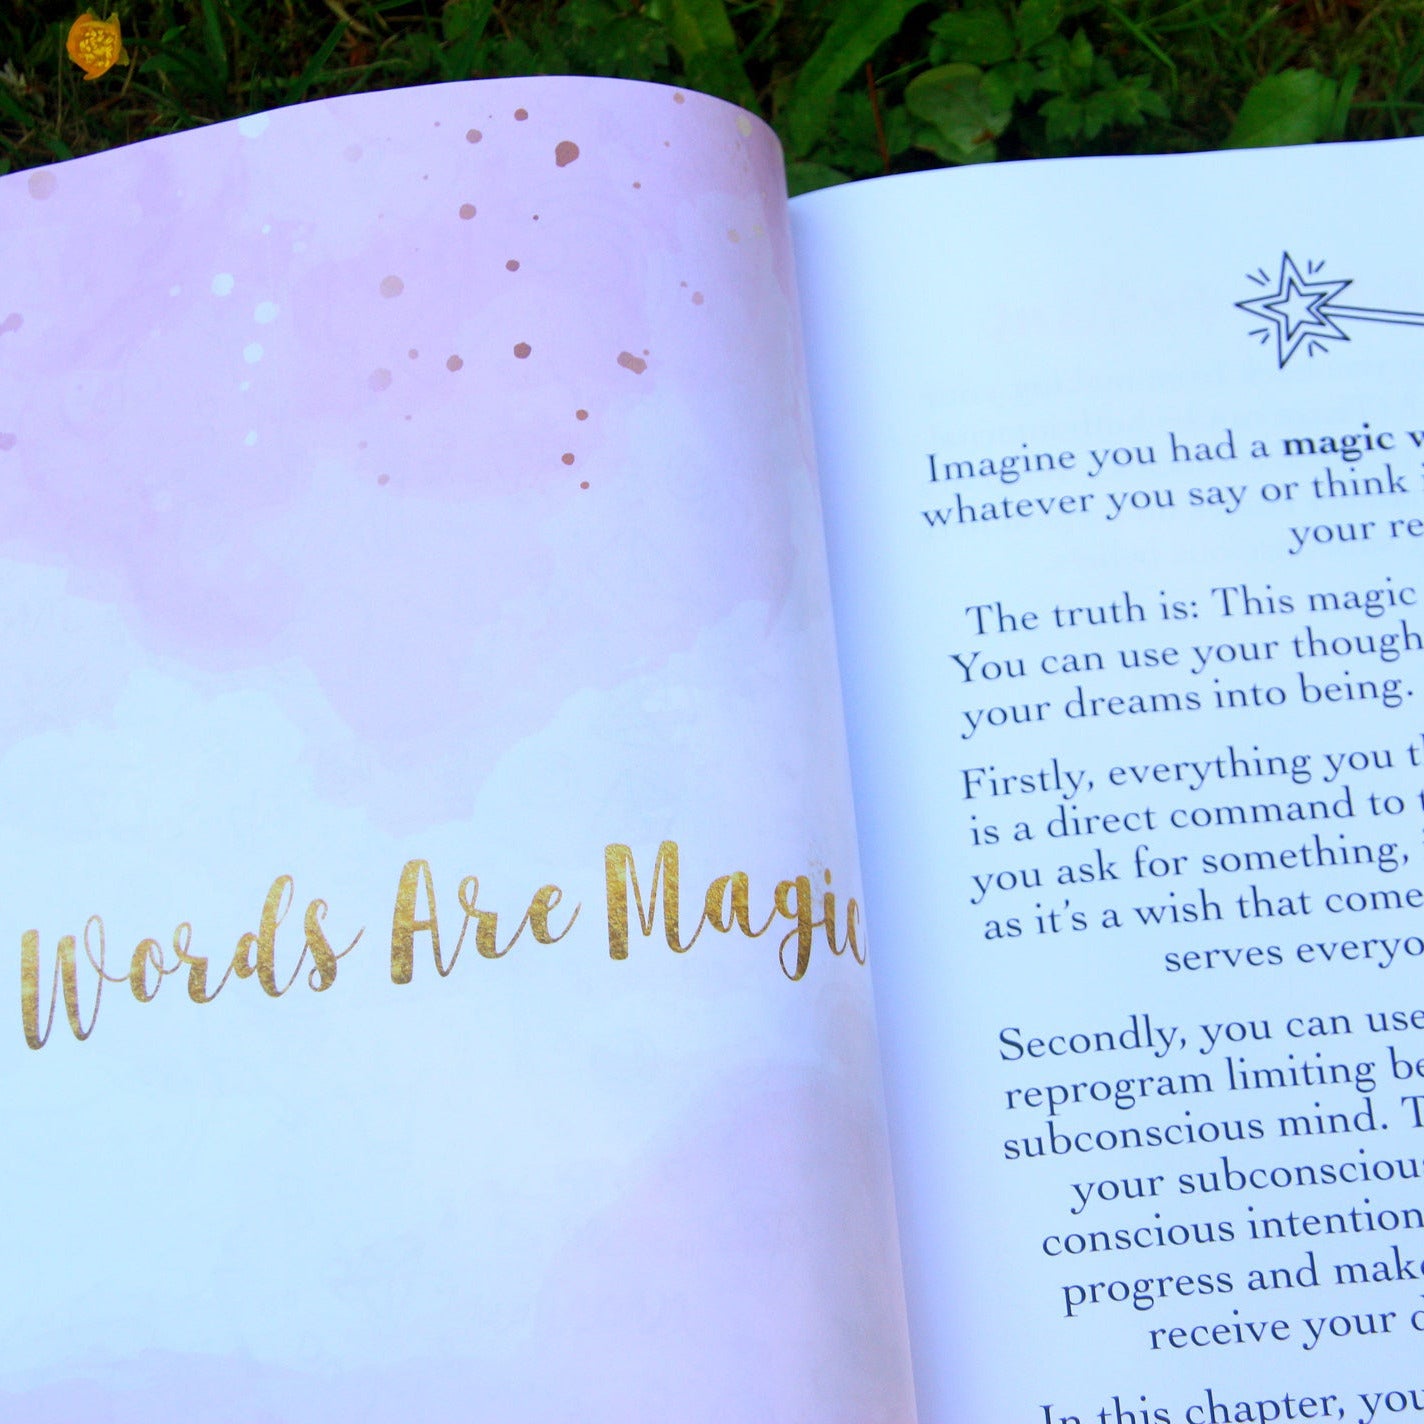 Words Are Magic
Imagine you had a magic
whatever you say or think
your
The truth is: This magic
You can use your
your dreams into being.
Firstly, everything you
is a direct command to
you ask for something,
as it's a wish that
serves
Secondly, you can use
reprogram limiting
subconscious mind.
your
conscious
progress and
receive your
In this chapter,